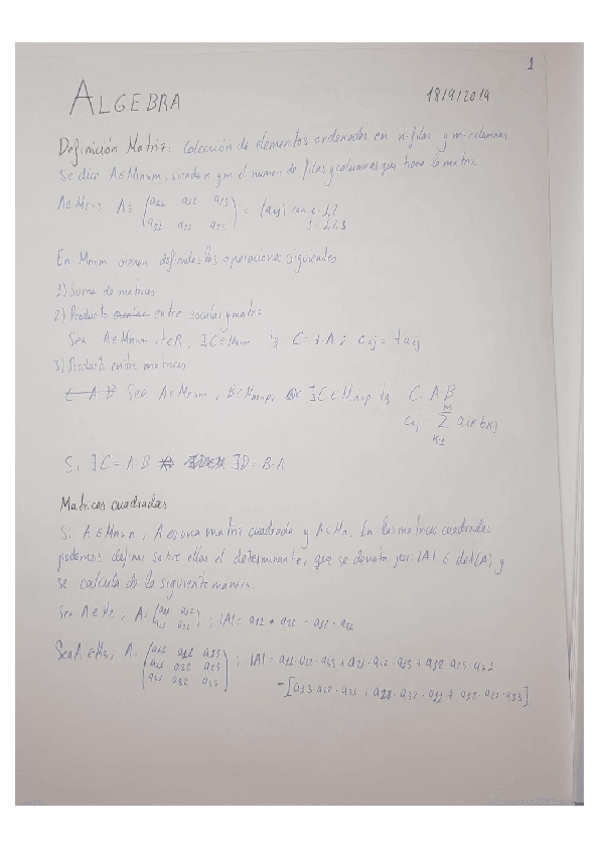 1
ALGEBRA 18/9/2019
Definición Matriz: Colección de elementos ordenados en n-filas y m-columnas
Se dice A∈Mnxm, siendo n y m el numero de filas y columnas que tiene la matriz
A∈M2x3 A= (a11 a12 a13
a21 a22 a23) = (aij) con i=1,2
j=1,2,3
En Mnxm vienen definidas las operaciones siguientes
1) Suma de matrices
2) Producto entre escalar y matriz
Sea A∈Mnxm, t∈R, ∃C∈Mnxm tq C = t·A; cij = t aij
3) Product entre matrices
C A·B Sea A∈Mnxm, B∈Mmxp, ∃C∈Mnxp tq C=A·B
cij = m Σ aik bkj
K=1
Si ∃C = A·B ∃D = B·A
Matrices cuadradas
Si A∈Mnxn, A es una matriz cuadrada y A∈Mn. En las matrices cuadradas
podemos definir sobre ellas el determinante, que se denota por |A| ó det(A) y
se calcula de la siguiente manera.
Sea A∈M2; A= ; |A| =
Sea A∈M3; A= ; |A| =